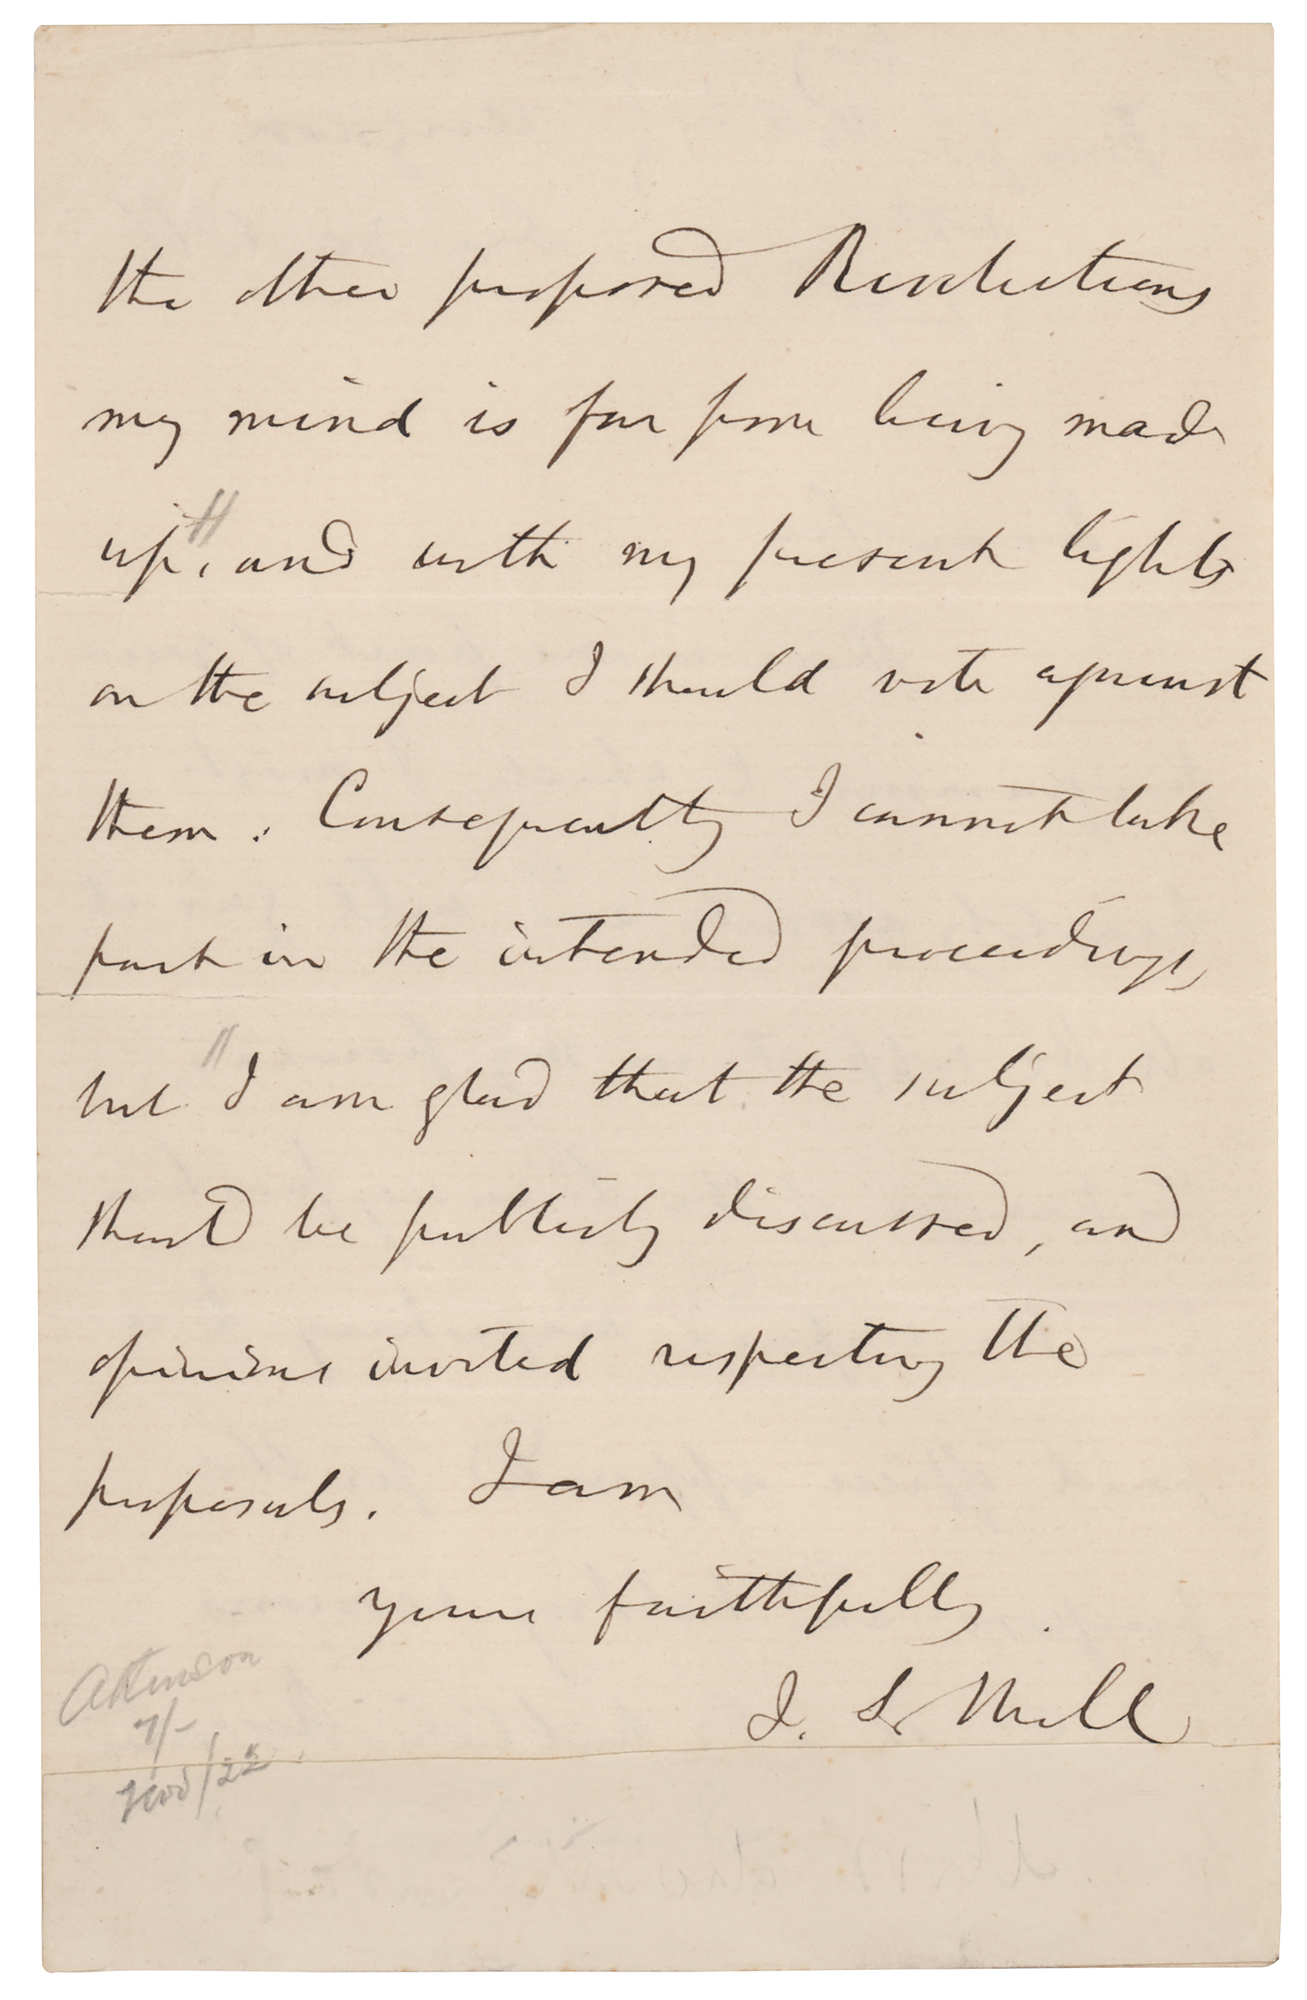 the other proposed Resolutions
my mind is far from being made
up, and with my present lights
on the subject I should vote against
them. Consequently I cannot take
part in the intended proceedings,
but I am glad that the subject
should be publicly discussed, and
opinions invited respecting the
proposals. I am
yours faithfully
J. S. Mill
Atkinson
7/-
Nov/22